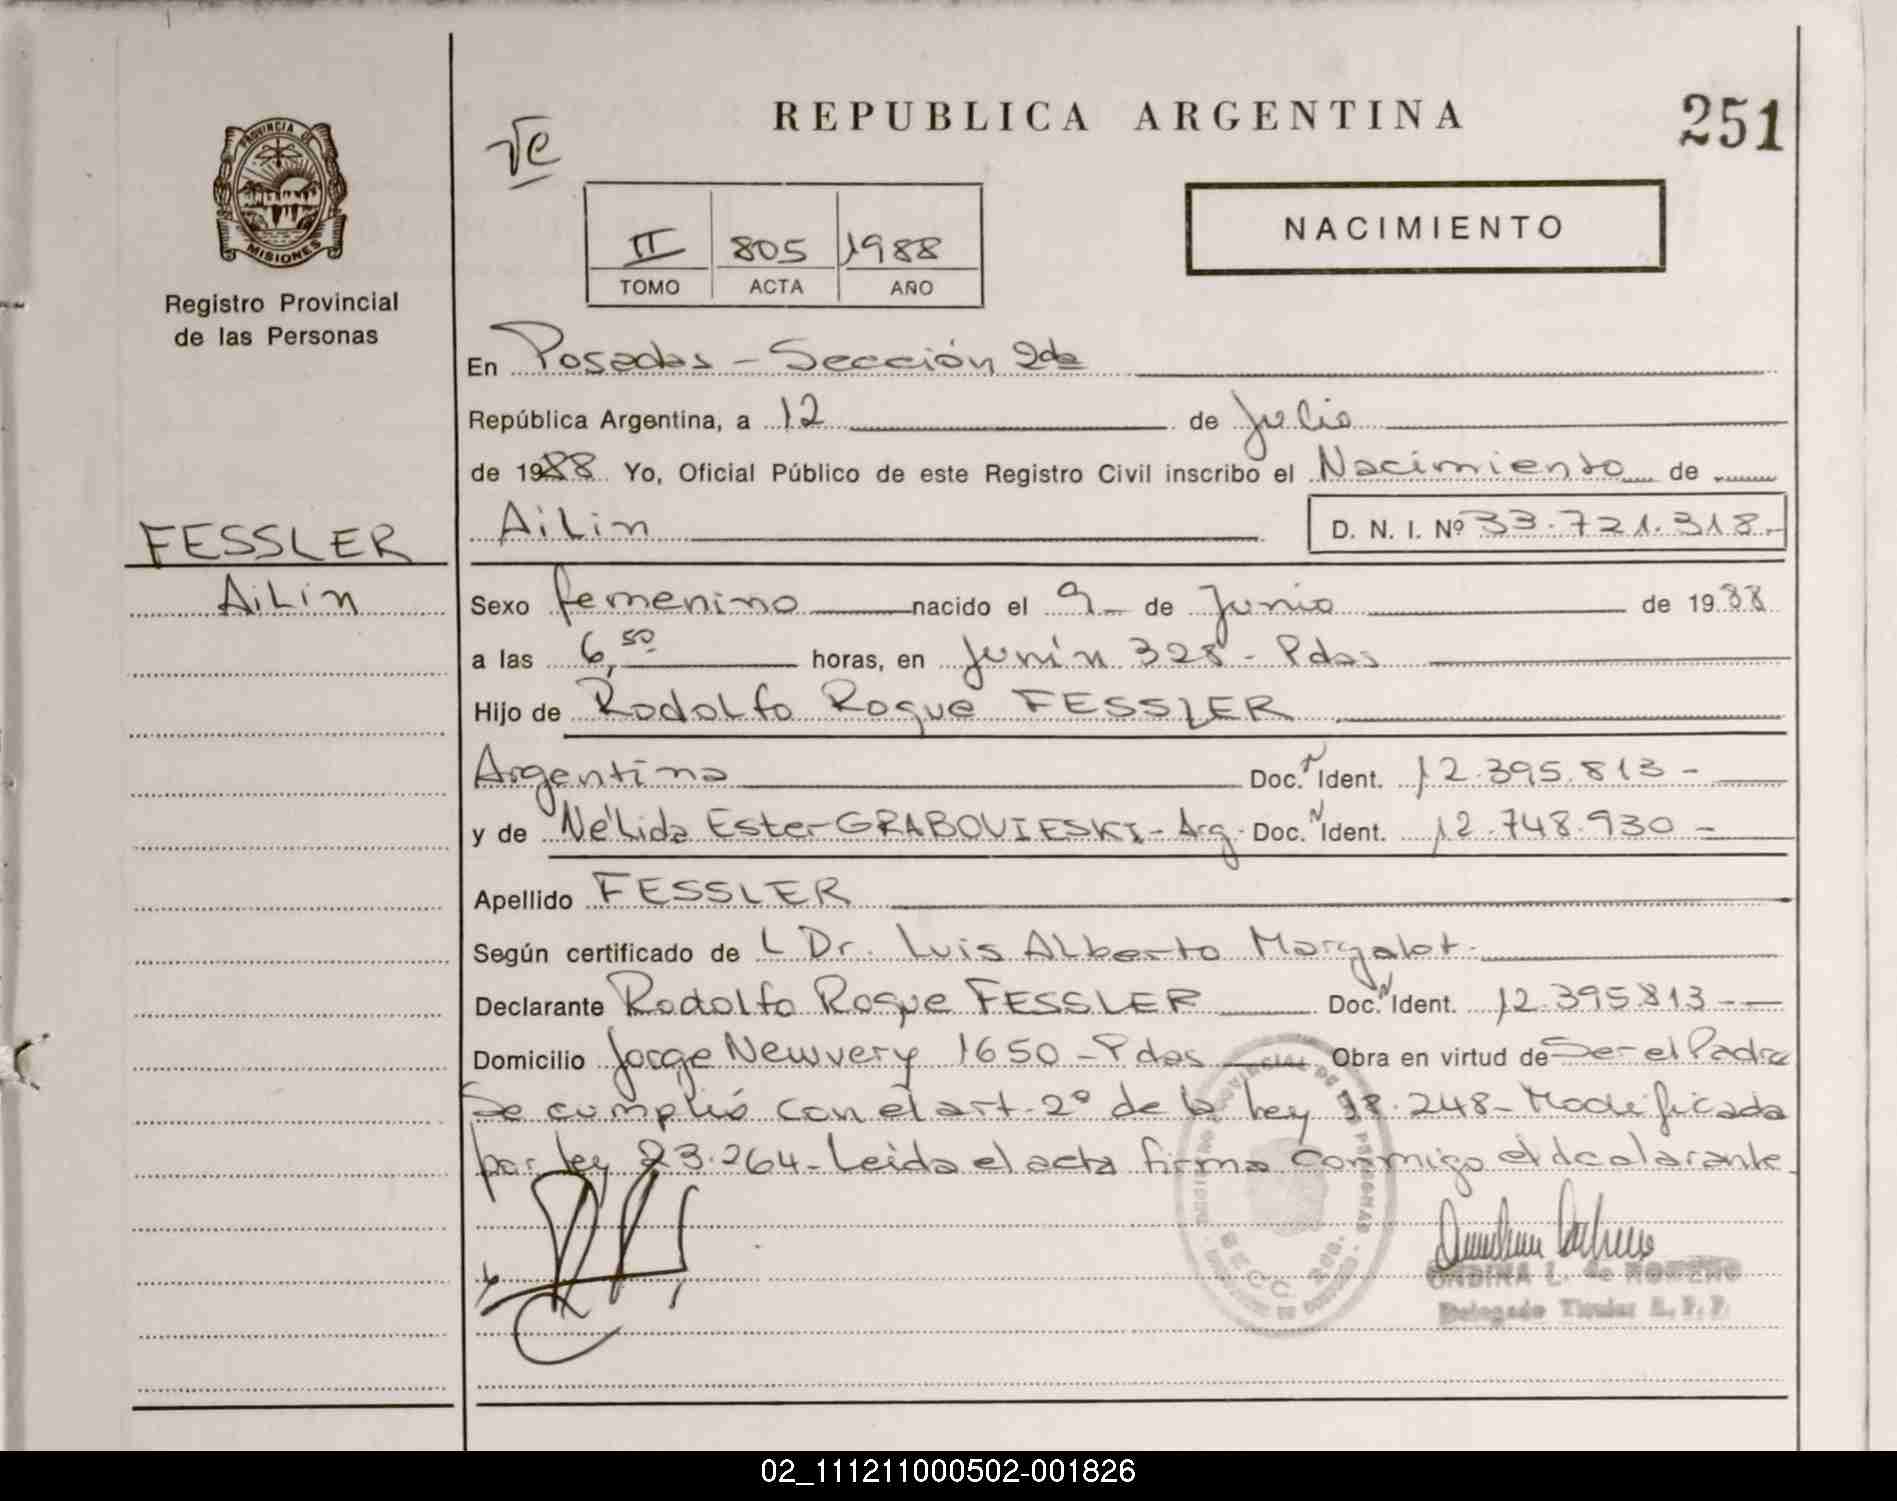 REPUBLICA ARGENTINA
251
PROVINCIA DE
MISIONES
Registro Provincial
de las Personas
II 805 1988
TOMO ACTA AÑO
NACIMIENTO
En Posadas - Sección 2da
República Argentina, a 12 de Julio
de 1988 Yo, Oficial Público de este Registro Civil inscribo el Nacimiento de
AiLin D. N. I. Nº 33.721.318.-
FESSLER
AiLin
Sexo femenino nacido el 9 de Junio de 1988
a las 6,50 horas, en Junín 328 - Pdas
Hijo de Rodolfo Roque FESSLER
Argentina Doc. Ident. 12.395.813 -
y de Nélida Ester GRABOVIESKI - Arg. Doc. Ident. 12.748.930 -
Apellido FESSLER
Según certificado de L Dr. Luis ALberto Margalot.
Declarante Rodolfo Roque FESSLER Doc. Ident. 12.395.813 -
Domicilio Jorge Newvery 1650 - Pdas Obra en virtud de Ser el Padre
Se cumplió con el art. 2º de la Ley 18.248 - Modificada
por ley 23.264 - Leída el acta firma conmigo el dcalarante
ONDINA L. de ROMERO
Delegado Titular R. P. P.
02_111211000502-001826